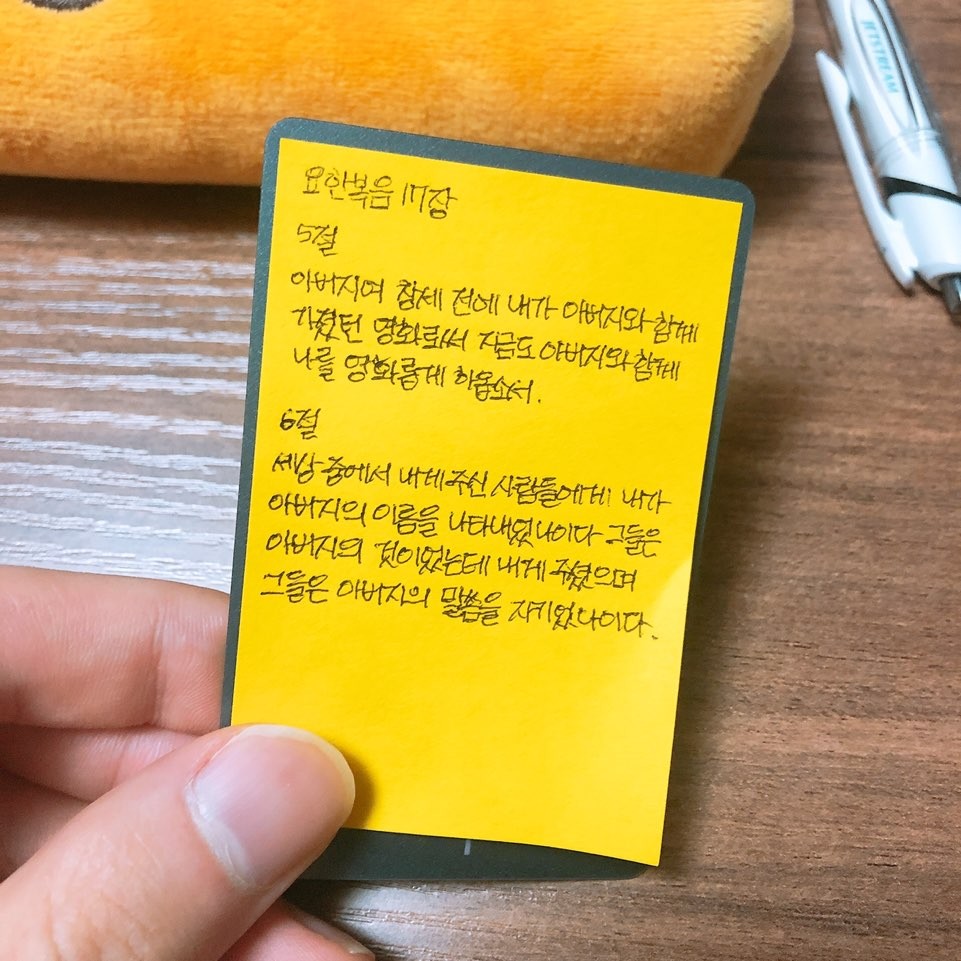 요한복음 17장
5절
아버지여 창세 전에 내가 아버지와 함께
가졌던 영화로써 지금도 아버지와 함께
나를 영화롭게 하옵소서.
6절
세상 중에서 내게 주신 사람들에게 내가
아버지의 이름을 나타내었나이다 그들은
아버지의 것이었는데 내게 주셨으며
그들은 아버지의 말씀을 지키었나이다.
JETSTREAM